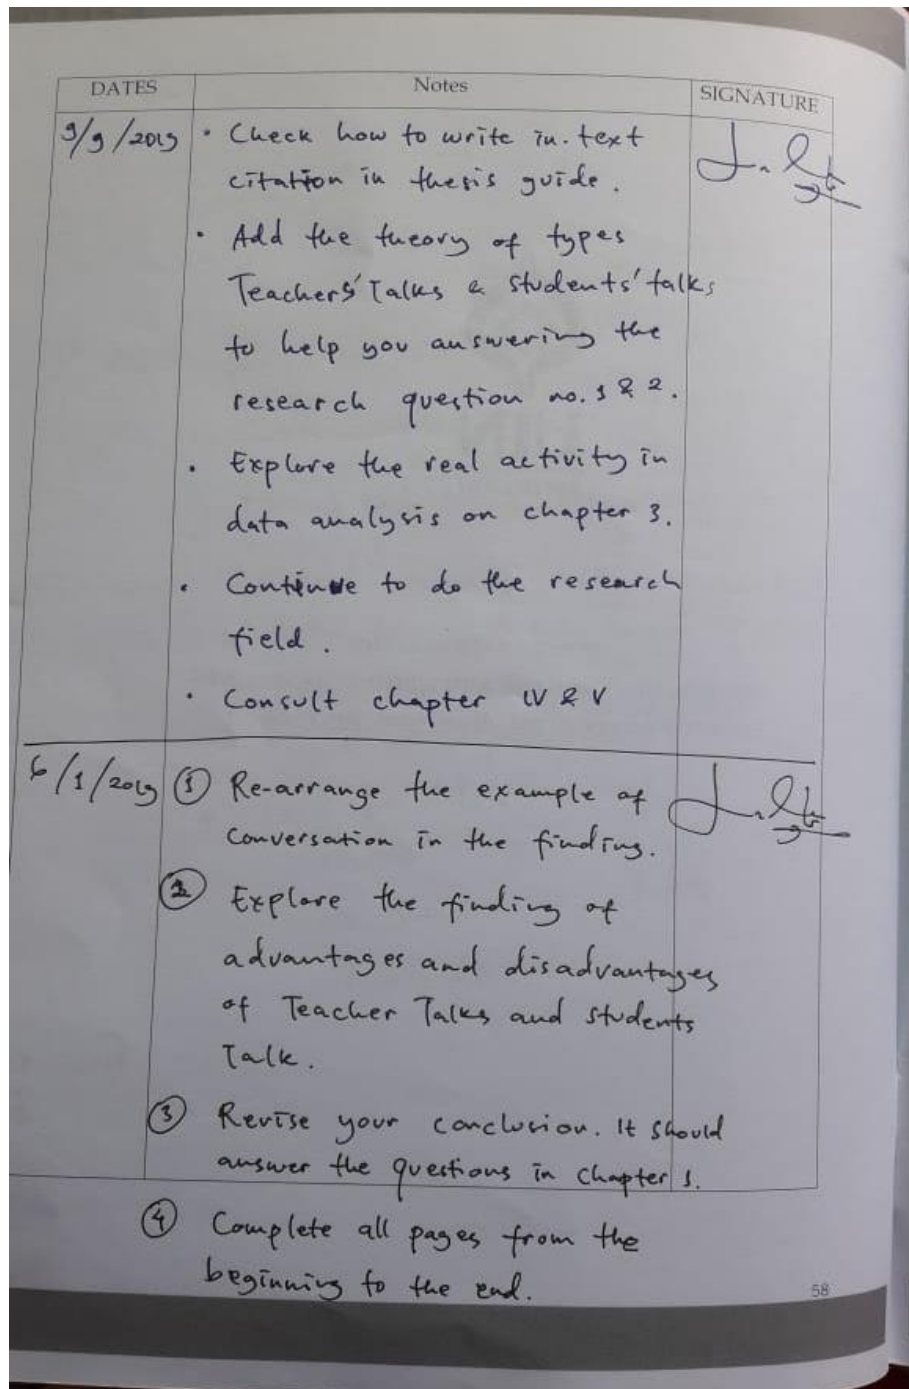 DATES Notes SIGNATURE
9/9/2019 • Check how to write in-text
citation in thesis guide.
• Add the theory of types
Teachers' Talks & students' talks
to help you answering the
research question no. 1 & 2.
• Explore the real activity in
data analysis on chapter 3.
• Continue to do the research
field.
• Consult chapter IV & V
6/1/2019 ① Re-arrange the example of
conversation in the finding.
② Explore the finding of
advantages and disadvantages
of Teacher Talks and students
Talk.
③ Revise your conclusion. It should
answer the questions in Chapter 1.
④ Complete all pages from the
beginning to the end.
58